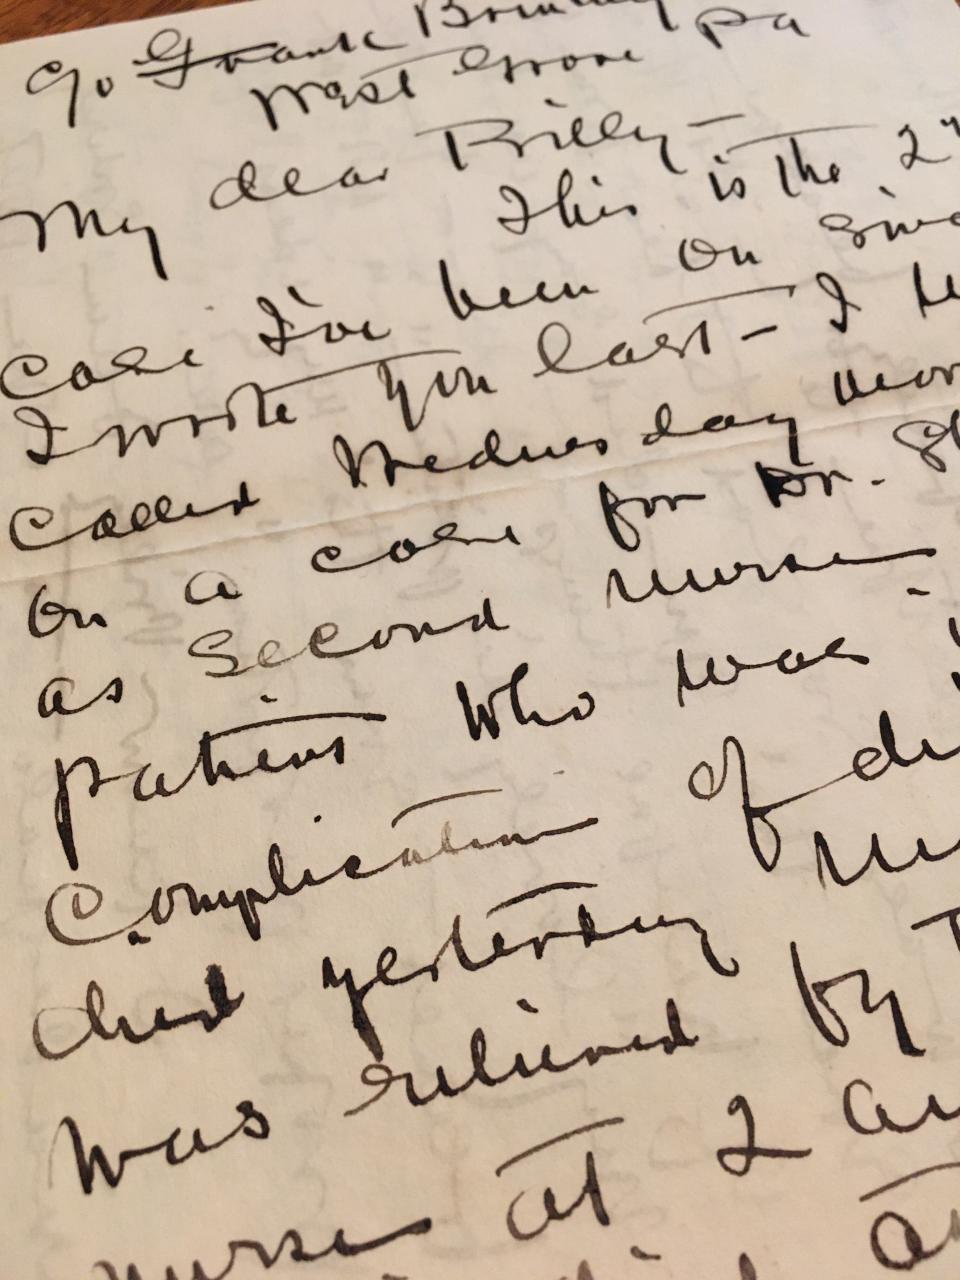 c/o Frank
West Grove Pa
My dear Billy —
This is the 2
case I've been on since
I wrote you last — I
called Wednesday
on a case for Dr.
as second nurse
patient who was
Complication of
died yesterday
was relieved by
nurse at 2